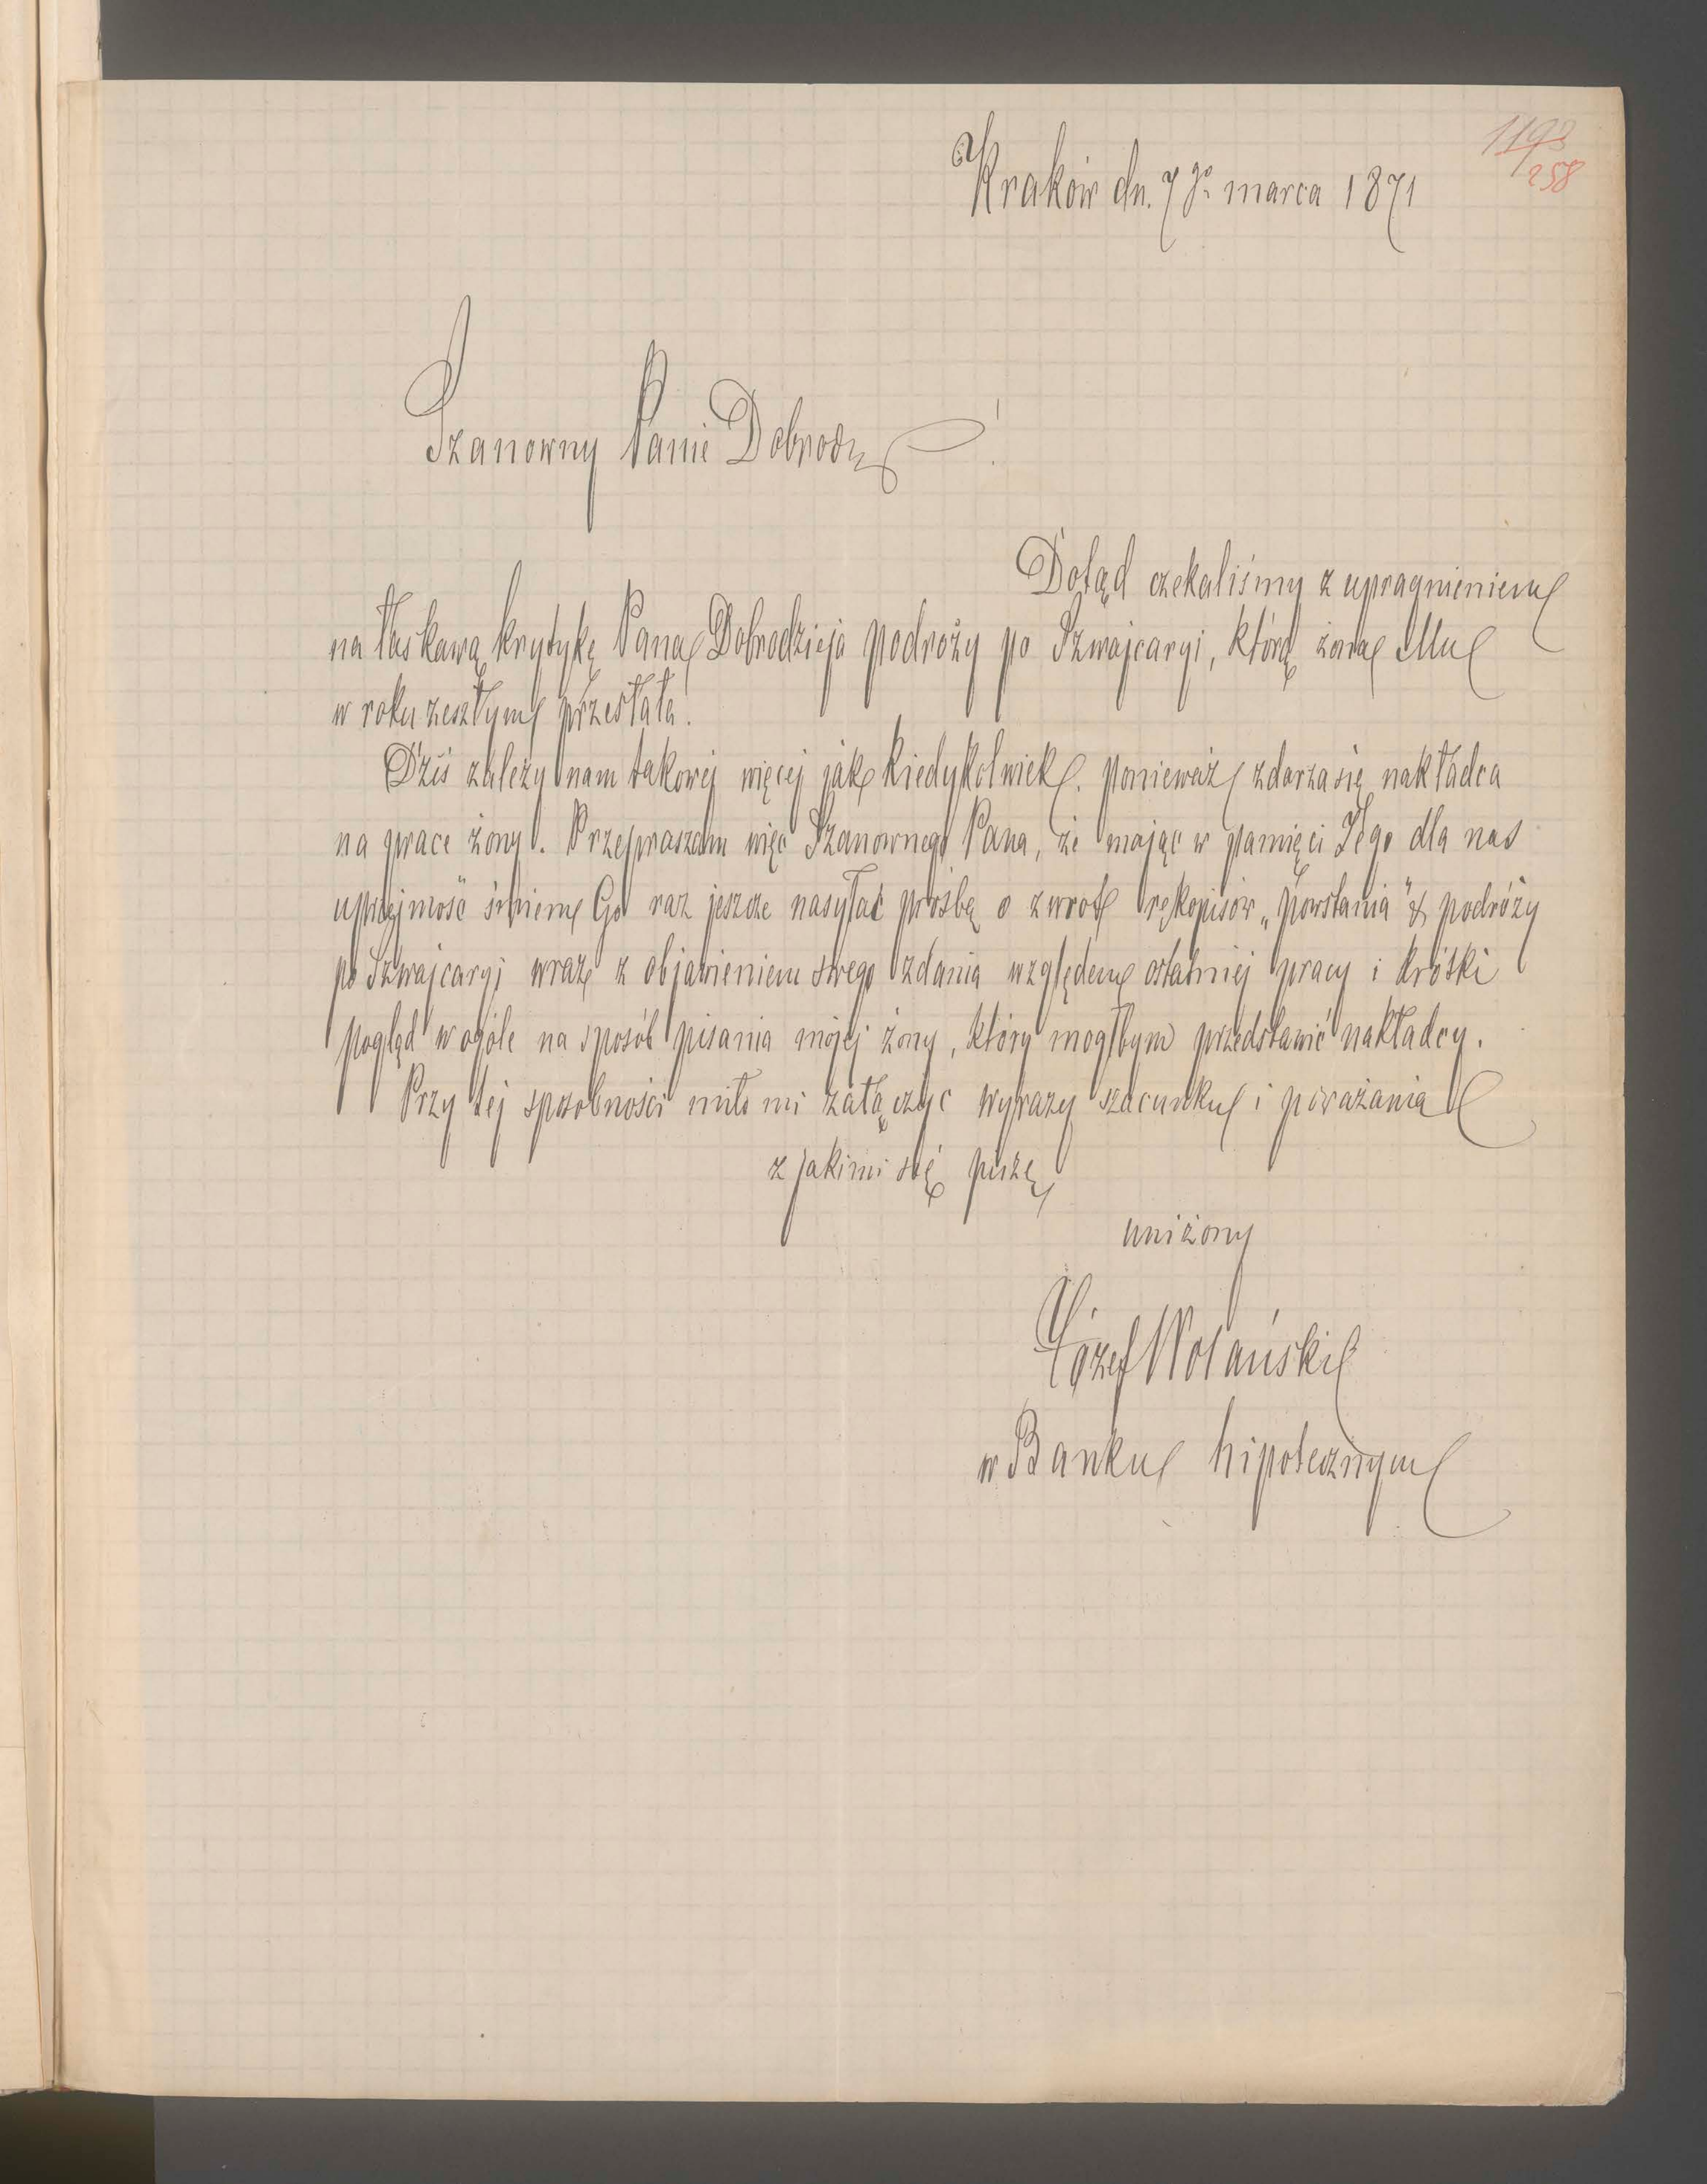 1193
258
Kraków dn. 7go marca 1871
Szanowny Panie Dobrodz !
Dotąd czekaliśmy z upragnieniem
na łaskawą krytykę Pana Dobrodzieja podroży po Szwajcaryi, którą żona Mu
w roku zeszłym przesłała.
Dziś zależy nam takowej więcej jak kiedykolwiek. ponieważ zdarza się nakładca
na prace żony. Przepraszam więc Szanownego Pana, że mając w pamięci Jego dla nas
uprzejmość śmiem Go raz jeszcze nasyłać prośbę o zwrot rękopisów „Powstania" & podróży
po Szwajcaryj wraz z objawieniem swego zdania względem ostatniej pracy i krótki
pogląd w ogóle na sposób pisania mojej żony, który mogłbym przedstawić nakładcy.
Przy tej sposobności miło mi załączyć wyrazy szacunku i poważania
z jakimi się piszę
uniżony
Józef Wolański
w Banku hipotecznym